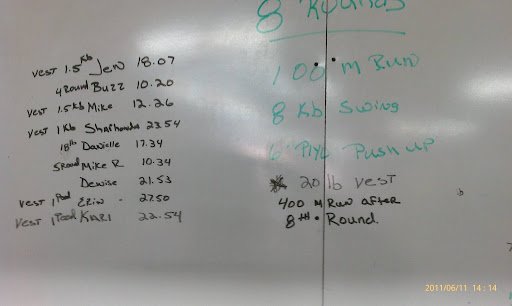 vest 1.5 Kb Jen 18.07
4 Round Buzz 10.20
vest 1.5 Kb Mike 12.26
vest 1 Kb 23.54
18 lb Danielle 17.34
5 Round Mike R 10.34
Denise 21.53
vest 1 Pood Erin - 27.50
vest 1 Pood Kari 22.54
8 Rounds
100 m Run
8 Kb Swing
6 Plyo Push up
* 20 lb vest
400 m Run after
8th Round.
2011/06/11 14:14